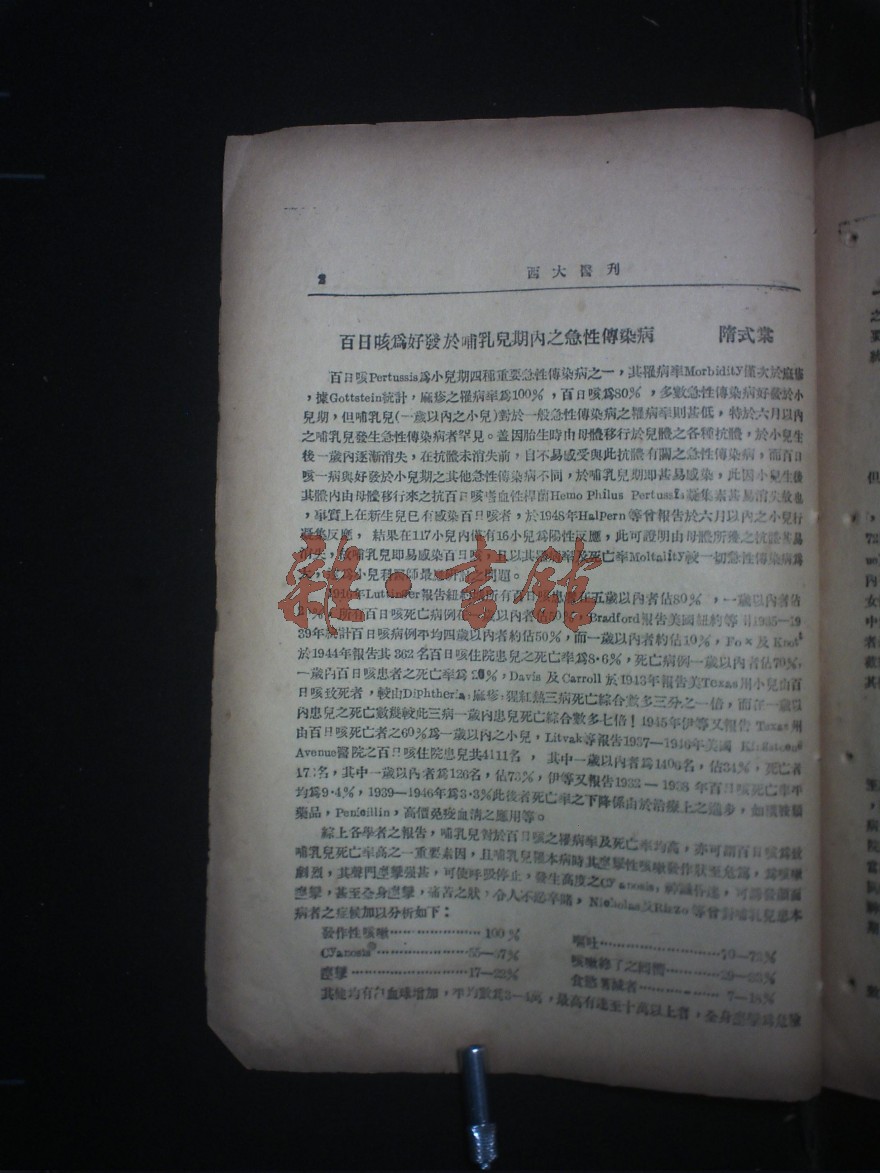 2
西大醫刊
百日咳爲好發於哺乳兒期內之急性傳染病 隋式棠
百日咳Pertussis爲小兒期四種重要急性傳染病之一，其罹病率Morbidity僅次於麻疹
，據Gottstein統計，麻疹之罹病率爲100%，百日咳爲80%，多數急性傳染病好發於小
兒期，但哺乳兒(一歲以內之小兒)對於一般急性傳染病之罹病率則甚低，特於六月以內
之哺乳兒發生急性傳染病者罕見。蓋因胎生時由母體移行於兒體之各種抗體，於小兒生
後一歲內逐漸消失，在抗體未消失前，自不易感受與此抗體有關之急性傳染病，而百日
咳一病與好發於小兒期之其他急性傳染病不同，於哺乳兒期即甚易感染，此因小兒生後
其體內由母體移行來之抗百日咳嗜血性桿菌Hemo Philus Pertussis凝集素甚易消失故也
，事實上在新生兒已有感染百日咳者，於1948年HalPern等曾報告於六月以內之小兒行
凝集反應， 結果在117小兒內僅有16小兒爲陽性反應，此可證明由母體所獲之抗體甚易
消失，故哺乳兒即易感染百日咳，且以其罹病率及死亡率Moltality較一切急性傳染病爲
大，故爲小兒科醫師最應研討之問題。
年Luttinger報告紐約所有百日咳患者在五歲以內者佔80%，一歲以內者佔
所有百日咳死亡病例在一歲以內者佔，Bradford報告美國紐約等1935—19
39年統計百日咳病例平均四歲以內者約佔50%，而一歲以內者約佔10%，Fox及
於1944年報告其362名百日咳住院患兒之死亡率爲8·6%，死亡病例一歲以內者佔70%，
一歲內百日咳患者之死亡率爲20%，Davis及Carroll於1943年報告美Texas州小兒由百
日咳致死者，較由Diphtheria，麻疹，猩紅熱三病死亡綜合數多三分之一倍，而在一歲以
內患兒之死亡數幾較此三病一歲內患兒死亡綜合數多七倍！1945年伊等又報告Texas州
由百日咳死亡者之60%爲一歲以內之小兒，Litvak等報告1937—1946年美國 Kingston
Avenue醫院之百日咳住院患兒共4111名， 其中一歲以內者爲1406名，佔34%，死亡者
17名，其中一歲以內者爲126名，佔73%，伊等又報告1932—1938年百日咳死亡率平
均爲9·4%，1939—1946年爲3·3%此後者死亡率之下降係由於治療上之進步，如磺胺類
藥品，Penicillin，高價免疫血清之應用等。
綜上各學者之報告，哺乳兒對於百日咳之罹病率及死亡率均高，亦可謂百日咳爲致
哺乳兒死亡率高之一重要素因，且哺乳兒罹本病時其痙攣性咳嗽發作狀至危篤，爲咳嗽
劇烈，其聲門痙攣強甚，可使呼吸停止，發生高度之Cyanosis，神識昏迷，可誘發顏面
痙攣，甚至全身痙攣，痛苦之狀，令人不忍卒睹，Nicholas及Rizzo等曾對哺乳兒患本
病者之症候加以分析如下：
發作性咳嗽…………………100%
Cyanosis…………………55—57%
痙攣…………………17—23%
嘔吐…………………70—73%
咳嗽終了之………29—
食慾減者……………7—18%
其他均有白血球增加，平均數爲3—4萬，最高有達至十萬以上者，全身痙攣爲危險
雜·書館